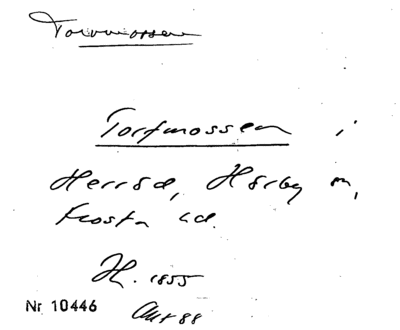 Torvmossen
Torfmossen i
Herröd, Hörby sn,
Frosta hd.
H. 1855
Nr 10446
88